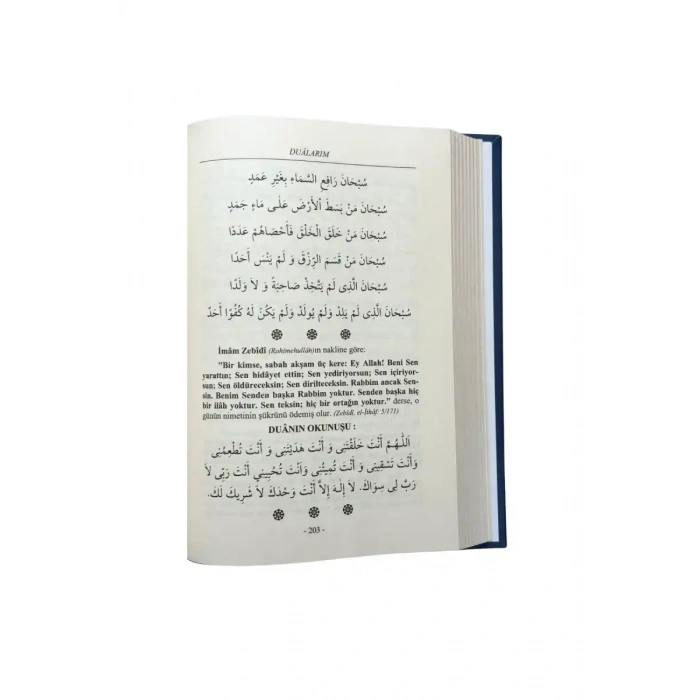 DUÂLARIM
سُبْحَانَ رَافِعِ السَّمَاءِ بِغَيْرِ عَمَدٍ
سُبْحَانَ مَنْ بَسَطَ اْلأَرْضَ عَلَى مَاءٍ جَمَدٍ
سُبْحَانَ مَنْ خَلَقَ الْخَلْقَ فَأَحْصَاهُمْ عَدَدًا
سُبْحَانَ مَنْ قَسَمَ الرِّزْقَ وَ لَمْ يَنْسَ أَحَدًا
سُبْحَانَ الَّذِى لَمْ يَتَّخِذْ صَاحِبَةً وَ لاَ وَلَدًا
سُبْحَانَ الَّذِى لَمْ يَلِدْ وَلَمْ يُولَدْ وَلَمْ يَكُنْ لَهُ كُفُوًا أَحَدٌ
İmâm Zebîdî (Rahimehullâh)ın nakline göre:
"Bir kimse, sabah akşam üç kere: Ey Allah! Beni Sen
yarattın; Sen hidâyet ettin; Sen yediriyorsun; Sen içiriyor-
sun; Sen öldüreceksin; Sen dirilteceksin. Rabbim ancak Sen-
sin. Benim Senden başka Rabbim yoktur. Senden başka hiç
bir ilâh yoktur. Sen teksin; hiç bir ortağın yoktur." derse, o
günün nimetinin şükrünü ödemiş olur. (Zebîdî, el-İthâf: 5/171)
DUÂNIN OKUNUŞU :
اَللَّهُمَّ أَنْتَ خَلَقْتَنِى وَ أَنْتَ هَدَيْتَنِى وَ أَنْتَ تُطْعِمُنِى
وَأَنْتَ تَسْقِينِى وَ أَنْتَ تُمِيتُنِى وَأَنْتَ تُحْيِينِي أَنْتَ رَبِّى لاَ
رَبَّ لِى سِوَاكَ. لاَ إِلَهَ إِلاَّ أَنْتَ وَحْدَكَ لاَ شَرِيكَ لَكَ.
- 203 -